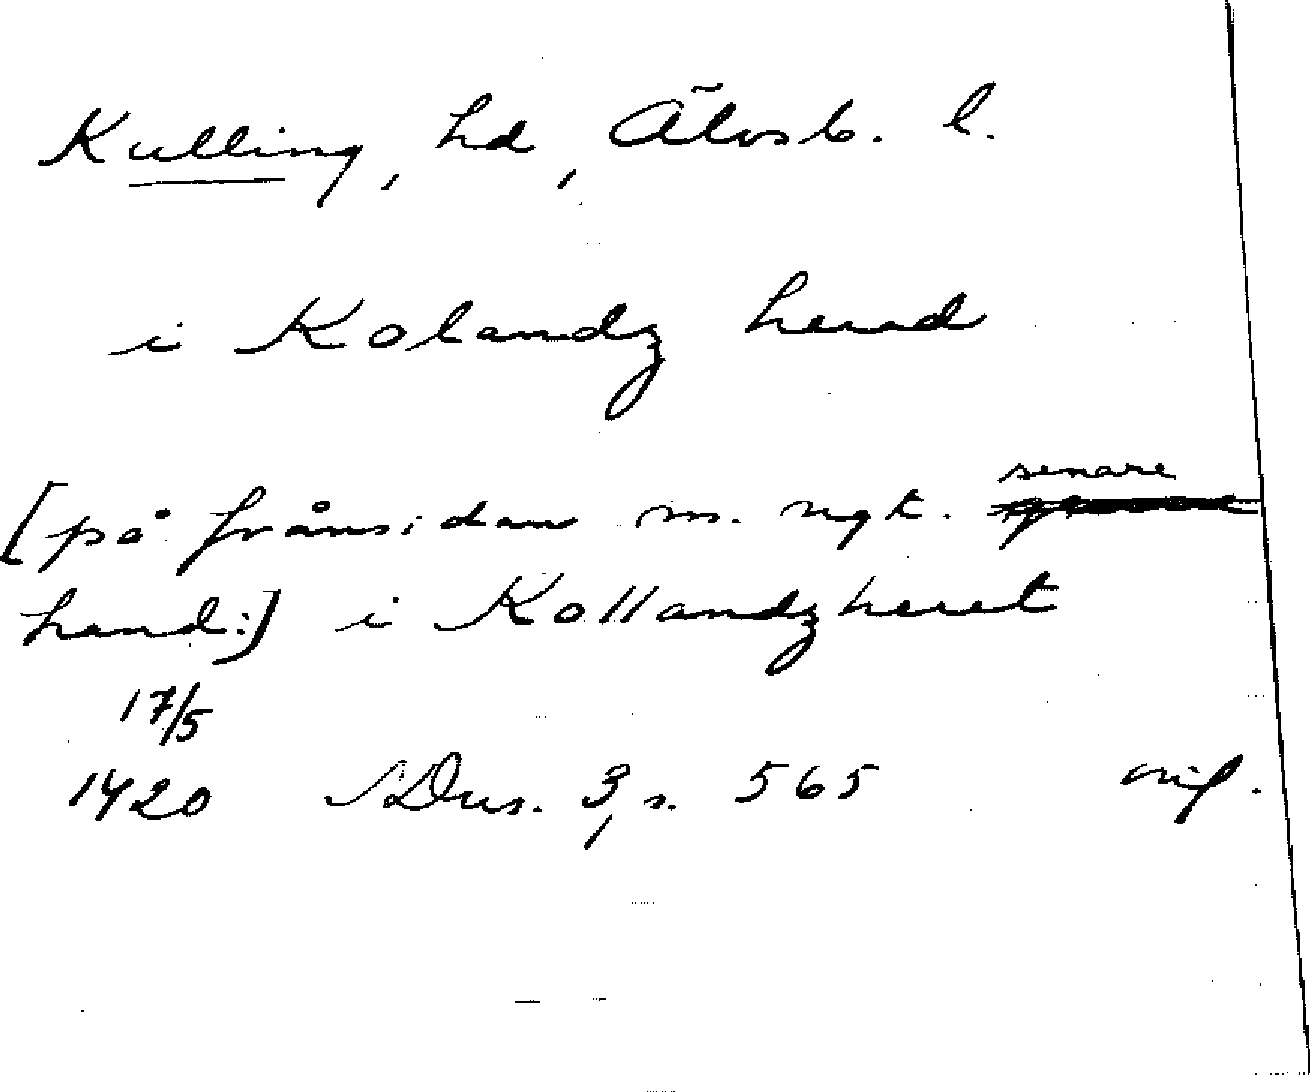 Kulling, hd, Älvsb. l.
i Kolandz herad
[på frånsidan m. ngt. senare
hand:] i Kollandzheret
17/5
1420 SDns. 3, s. 565 orig.